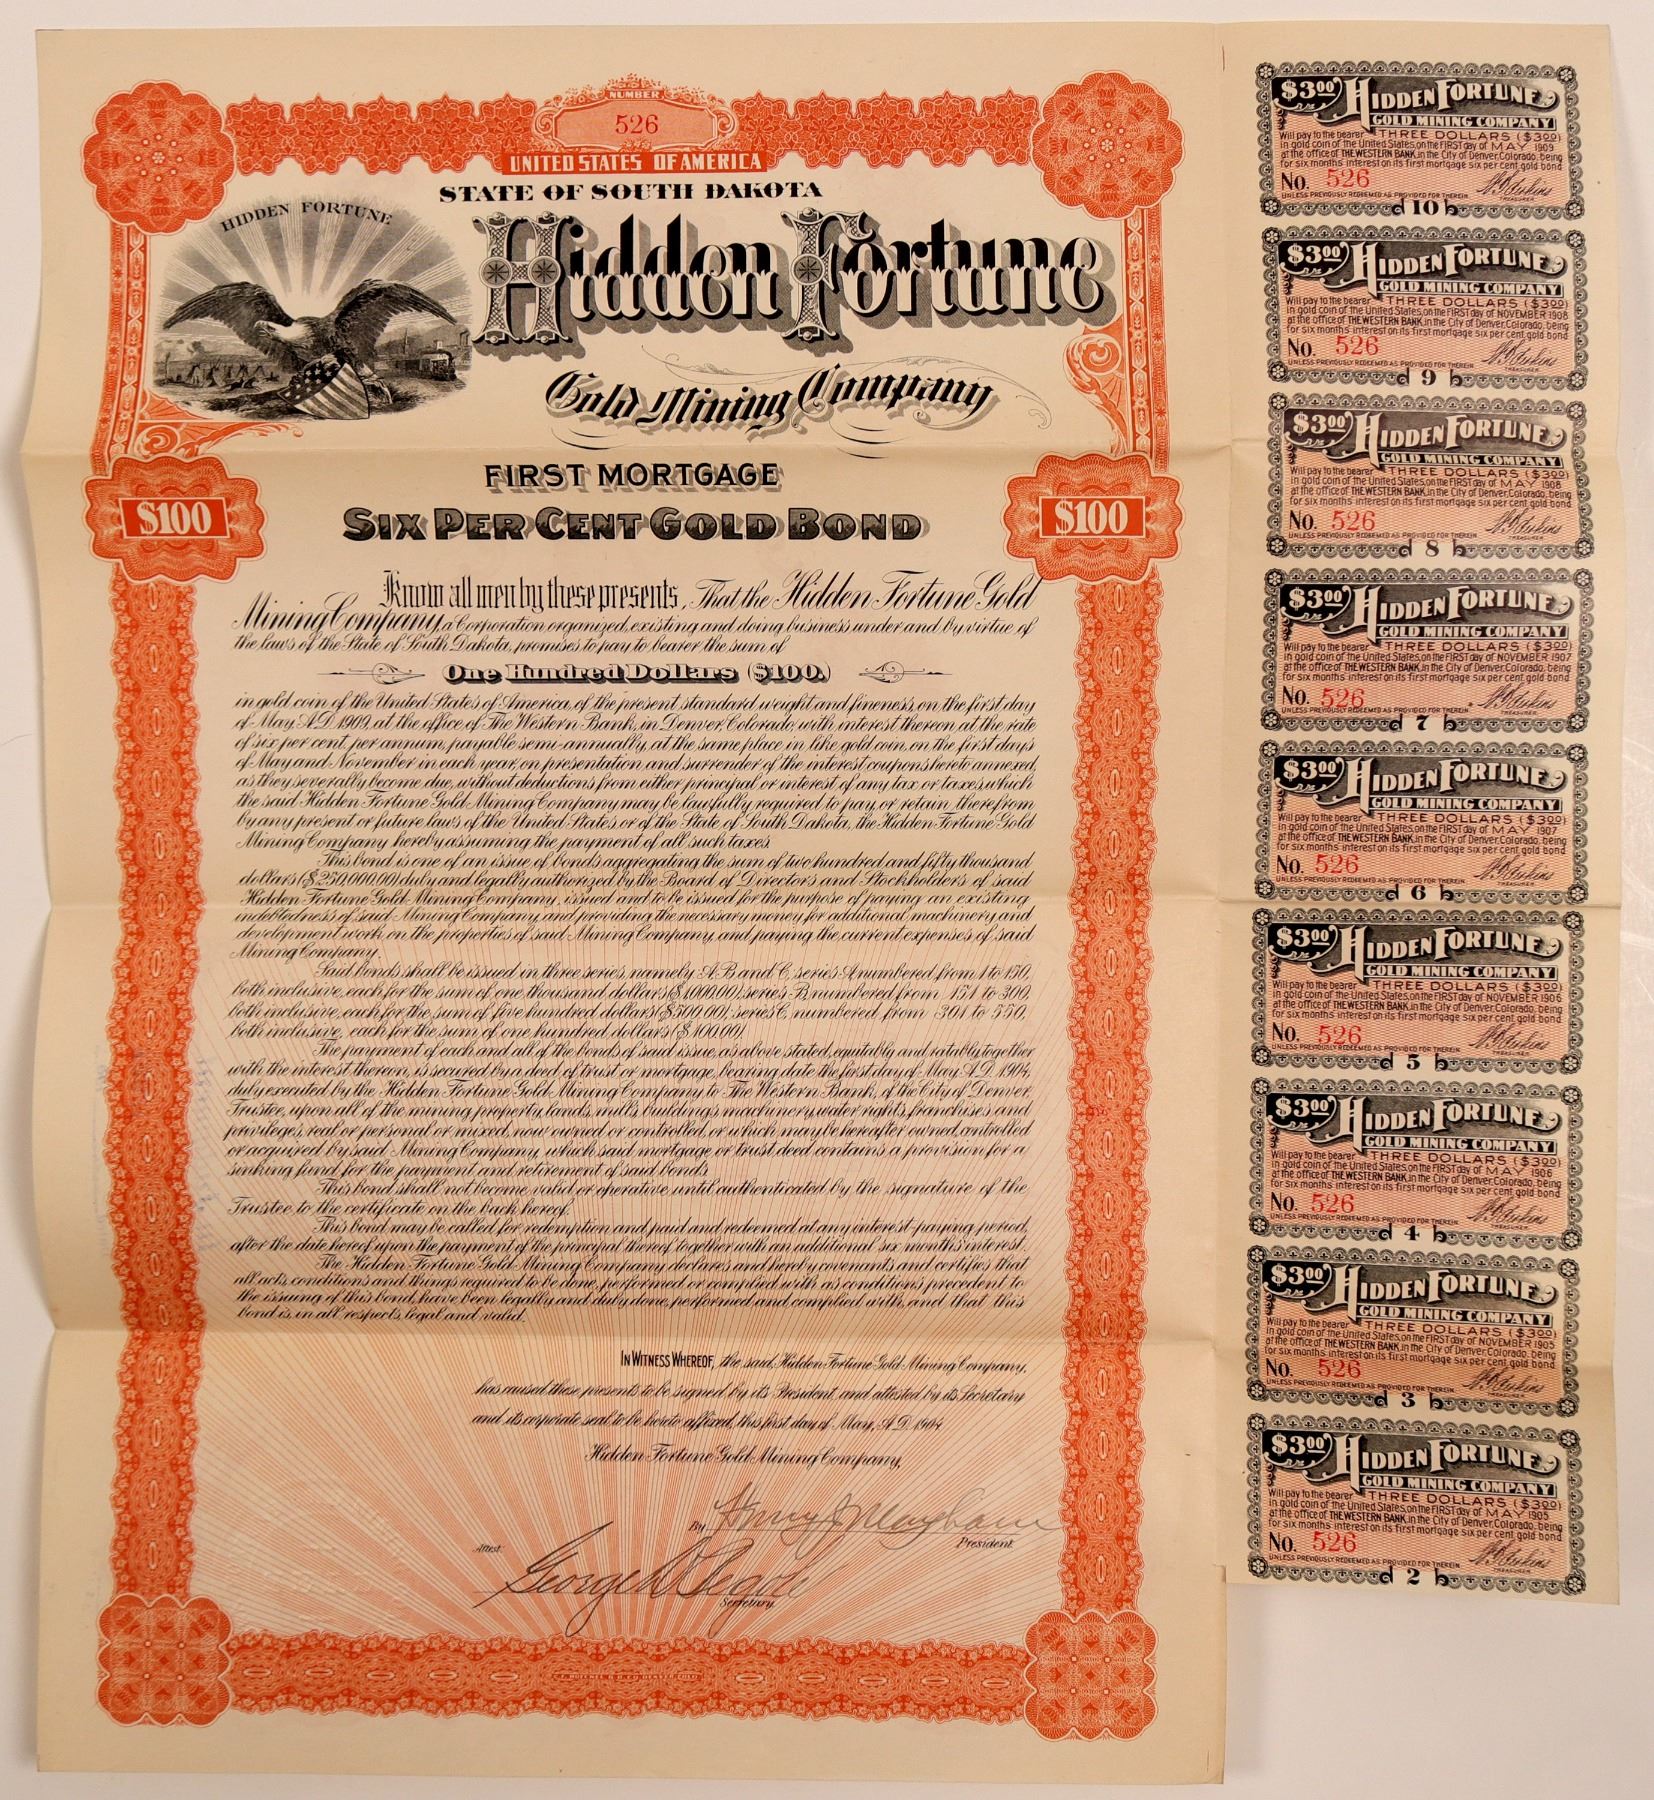 NUMBER
526
UNITED STATES OF AMERICA
STATE OF SOUTH DAKOTA
HIDDEN FORTUNE
Hidden Fortune
Gold Mining Company
FIRST MORTGAGE
$100
SIX PER CENT GOLD BOND
$100
Know all men by these presents, That the Hidden Fortune Gold
Mining Company, a Corporation organized, existing and doing business under and by virtue of
the laws of the State of South Dakota, promises to pay to bearer the sum of
One Hundred Dollars ($100.)
in gold coin of the United States of America, of the present standard weight and fineness, on the first day
of May, A.D. 1909, at the office of The Western Bank, in Denver, Colorado, with interest thereon at the rate
of six per cent. per annum, payable semi-annually, at the same place in like gold coin, on the first days
of May and November in each year, on presentation and surrender of the interest coupons hereto annexed,
as they severally become due, without deductions from either principal or interest of any tax or taxes which
the said Hidden Fortune Gold Mining Company may be lawfully required to pay, or retain therefrom
by any present or future laws of the United States, or of the State of South Dakota, the Hidden Fortune Gold
Mining Company hereby assuming the payment of all such taxes.
This bond is one of an issue of bonds aggregating the sum of two hundred and fifty thousand
dollars ($250,000.00) duly and legally authorized by the Board of Directors and Stockholders of said
Hidden Fortune Gold Mining Company, issued and to be issued for the purpose of paying an existing
indebtedness of said Mining Company, and providing the necessary money for additional machinery and
development work on the properties of said Mining Company, and paying the current expenses of said
Mining Company.
Said bonds shall be issued in three series, namely A, B and C, series A numbered from 1 to 150,
both inclusive, each for the sum of one thousand dollars ($1000.00), series B, numbered from 151 to 300,
both inclusive, each for the sum of five hundred dollars ($500.00), series C, numbered from 301 to 550,
both inclusive, each for the sum of one hundred dollars ($100.00).
The payment of each and all of the bonds of said issue, as above stated, equitably and ratably, together
with the interest thereon, is secured by a deed of trust or mortgage, bearing date the first day of May A.D. 1904,
duly executed by the Hidden Fortune Gold Mining Company to The Western Bank, of the City of Denver,
Trustee, upon all of the mining property, lands, mills, buildings, machinery, water rights, franchises and
privileges, real or personal or mixed, now owned or controlled, or which may be hereafter owned, controlled
or acquired by said Mining Company, which said mortgage or trust deed contains a provision for a
sinking fund for the payment and retirement of said bonds.
This bond shall not become valid or operative until authenticated by the signature of the
Trustee, to the certificate on the back hereof.
This bond may be called for redemption and paid and redeemed at any interest-paying period,
after the date hereof upon the payment of the principal thereof, together with an additional six months interest.
The Hidden Fortune Gold Mining Company declares and hereby covenants and certifies that
all acts, conditions and things required to be done, performed or complied with as conditions precedent to
the issuing of this bond, have been legally and duly done, performed and complied with, and that this
bond is, in all respects, legal and valid.
IN WITNESS WHEREOF, the said, Hidden Fortune Gold Mining Company,
has caused these presents to be signed by its President, and attested by its Secretary
and its corporate seal to be hereto affixed, this first day of May, A.D. 1904
Hidden Fortune Gold Mining Company,
By
President.
Attest:
Secretary.
$3.00 HIDDEN FORTUNE
GOLD MINING COMPANY
Will pay to the bearer THREE DOLLARS ($3.00)
in gold coin of the United States, on the FIRST day of MAY 1909
at the office of THE WESTERN BANK, in the City of Denver, Colorado, being
for six months interest on its first mortgage six per cent gold bond
No. 526
UNLESS PREVIOUSLY REDEEMED AS PROVIDED FOR THEREIN
TREASURER
10
$3.00 HIDDEN FORTUNE
GOLD MINING COMPANY
Will pay to the bearer THREE DOLLARS ($3.00)
in gold coin of the United States, on the FIRST day of NOVEMBER 1908
at the office of THE WESTERN BANK, in the City of Denver, Colorado, being
for six months interest on its first mortgage six per cent gold bond
No. 526
UNLESS PREVIOUSLY REDEEMED AS PROVIDED FOR THEREIN
TREASURER
9
$3.00 HIDDEN FORTUNE
GOLD MINING COMPANY
Will pay to the bearer THREE DOLLARS ($3.00)
in gold coin of the United States, on the FIRST day of MAY 1908
at the office of THE WESTERN BANK, in the City of Denver, Colorado, being
for six months interest on its first mortgage six per cent gold bond
No. 526
UNLESS PREVIOUSLY REDEEMED AS PROVIDED FOR THEREIN
TREASURER
8
$3.00 HIDDEN FORTUNE
GOLD MINING COMPANY
Will pay to the bearer THREE DOLLARS ($3.00)
in gold coin of the United States, on the FIRST day of NOVEMBER 1907
at the office of THE WESTERN BANK, in the City of Denver, Colorado, being
for six months interest on its first mortgage six per cent gold bond
No. 526
UNLESS PREVIOUSLY REDEEMED AS PROVIDED FOR THEREIN
TREASURER
7
$3.00 HIDDEN FORTUNE
GOLD MINING COMPANY
Will pay to the bearer THREE DOLLARS ($3.00)
in gold coin of the United States, on the FIRST day of MAY 1907
at the office of THE WESTERN BANK, in the City of Denver, Colorado, being
for six months interest on its first mortgage six per cent gold bond
No. 526
UNLESS PREVIOUSLY REDEEMED AS PROVIDED FOR THEREIN
TREASURER
6
$3.00 HIDDEN FORTUNE
GOLD MINING COMPANY
Will pay to the bearer THREE DOLLARS ($3.00)
in gold coin of the United States, on the FIRST day of NOVEMBER 1906
at the office of THE WESTERN BANK, in the City of Denver, Colorado, being
for six months interest on its first mortgage six per cent gold bond
No. 526
UNLESS PREVIOUSLY REDEEMED AS PROVIDED FOR THEREIN
TREASURER
5
$3.00 HIDDEN FORTUNE
GOLD MINING COMPANY
Will pay to the bearer THREE DOLLARS ($3.00)
in gold coin of the United States, on the FIRST day of MAY 1906
at the office of THE WESTERN BANK, in the City of Denver, Colorado, being
for six months interest on its first mortgage six per cent gold bond
No. 526
UNLESS PREVIOUSLY REDEEMED AS PROVIDED FOR THEREIN
TREASURER
4
$3.00 HIDDEN FORTUNE
GOLD MINING COMPANY
Will pay to the bearer THREE DOLLARS ($3.00)
in gold coin of the United States, on the FIRST day of NOVEMBER 1905
at the office of THE WESTERN BANK, in the City of Denver, Colorado, being
for six months interest on its first mortgage six per cent gold bond
No. 526
UNLESS PREVIOUSLY REDEEMED AS PROVIDED FOR THEREIN
TREASURER
3
$3.00 HIDDEN FORTUNE
GOLD MINING COMPANY
Will pay to the bearer THREE DOLLARS ($3.00)
in gold coin of the United States, on the FIRST day of MAY 1905
at the office of THE WESTERN BANK, in the City of Denver, Colorado, being
for six months interest on its first mortgage six per cent gold bond
No. 526
UNLESS PREVIOUSLY REDEEMED AS PROVIDED FOR THEREIN
TREASURER
2